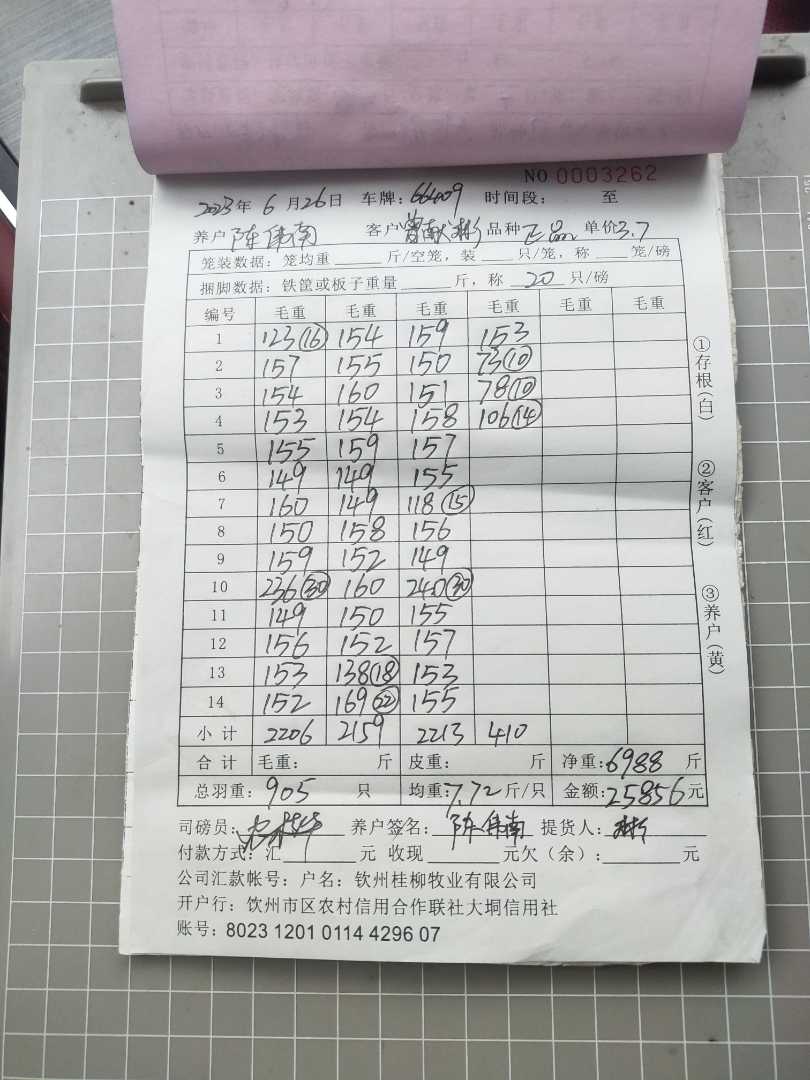 NO 0003262
2023年 6月26日 车牌：66009 时间段： 至
养户 陈伟南 客户 曾献彬 品种 正品 单价3.7
笼装数据：笼均重 斤/空笼，装 只/笼，称 笼/磅
捆脚数据：铁筐或板子重量 斤，称 20 只/磅
编号 毛重 毛重 毛重 毛重 毛重 毛重
1 123(16) 154 159 153
2 157 155 150 73(10)
3 154 160 151 78(10)
4 153 154 158 106(14)
5 155 159 157
6 149 149 155
7 160 149 118(15)
8 150 158 156
9 159 152 149
10 236(30) 160 240(30)
11 149 150 155
12 156 152 157
13 153 138(18) 153
14 152 169(22) 155
小计 2206 2159 2213 410
合计 毛重： 斤 皮重： 斤 净重：6988 斤
总羽重：905 只 均重：7.72斤/只 金额：25856元
司磅员： 养户签名：陈伟南 提货人：彬
付款方式：汇 元 收现 元欠（余）： 元
公司汇款帐号：户名：钦州桂柳牧业有限公司
开户行：钦州市区农村信用合作联社大垌信用社
账号：8023 1201 0114 4296 07
①存根（白）
②客户（红）
③养户（黄）